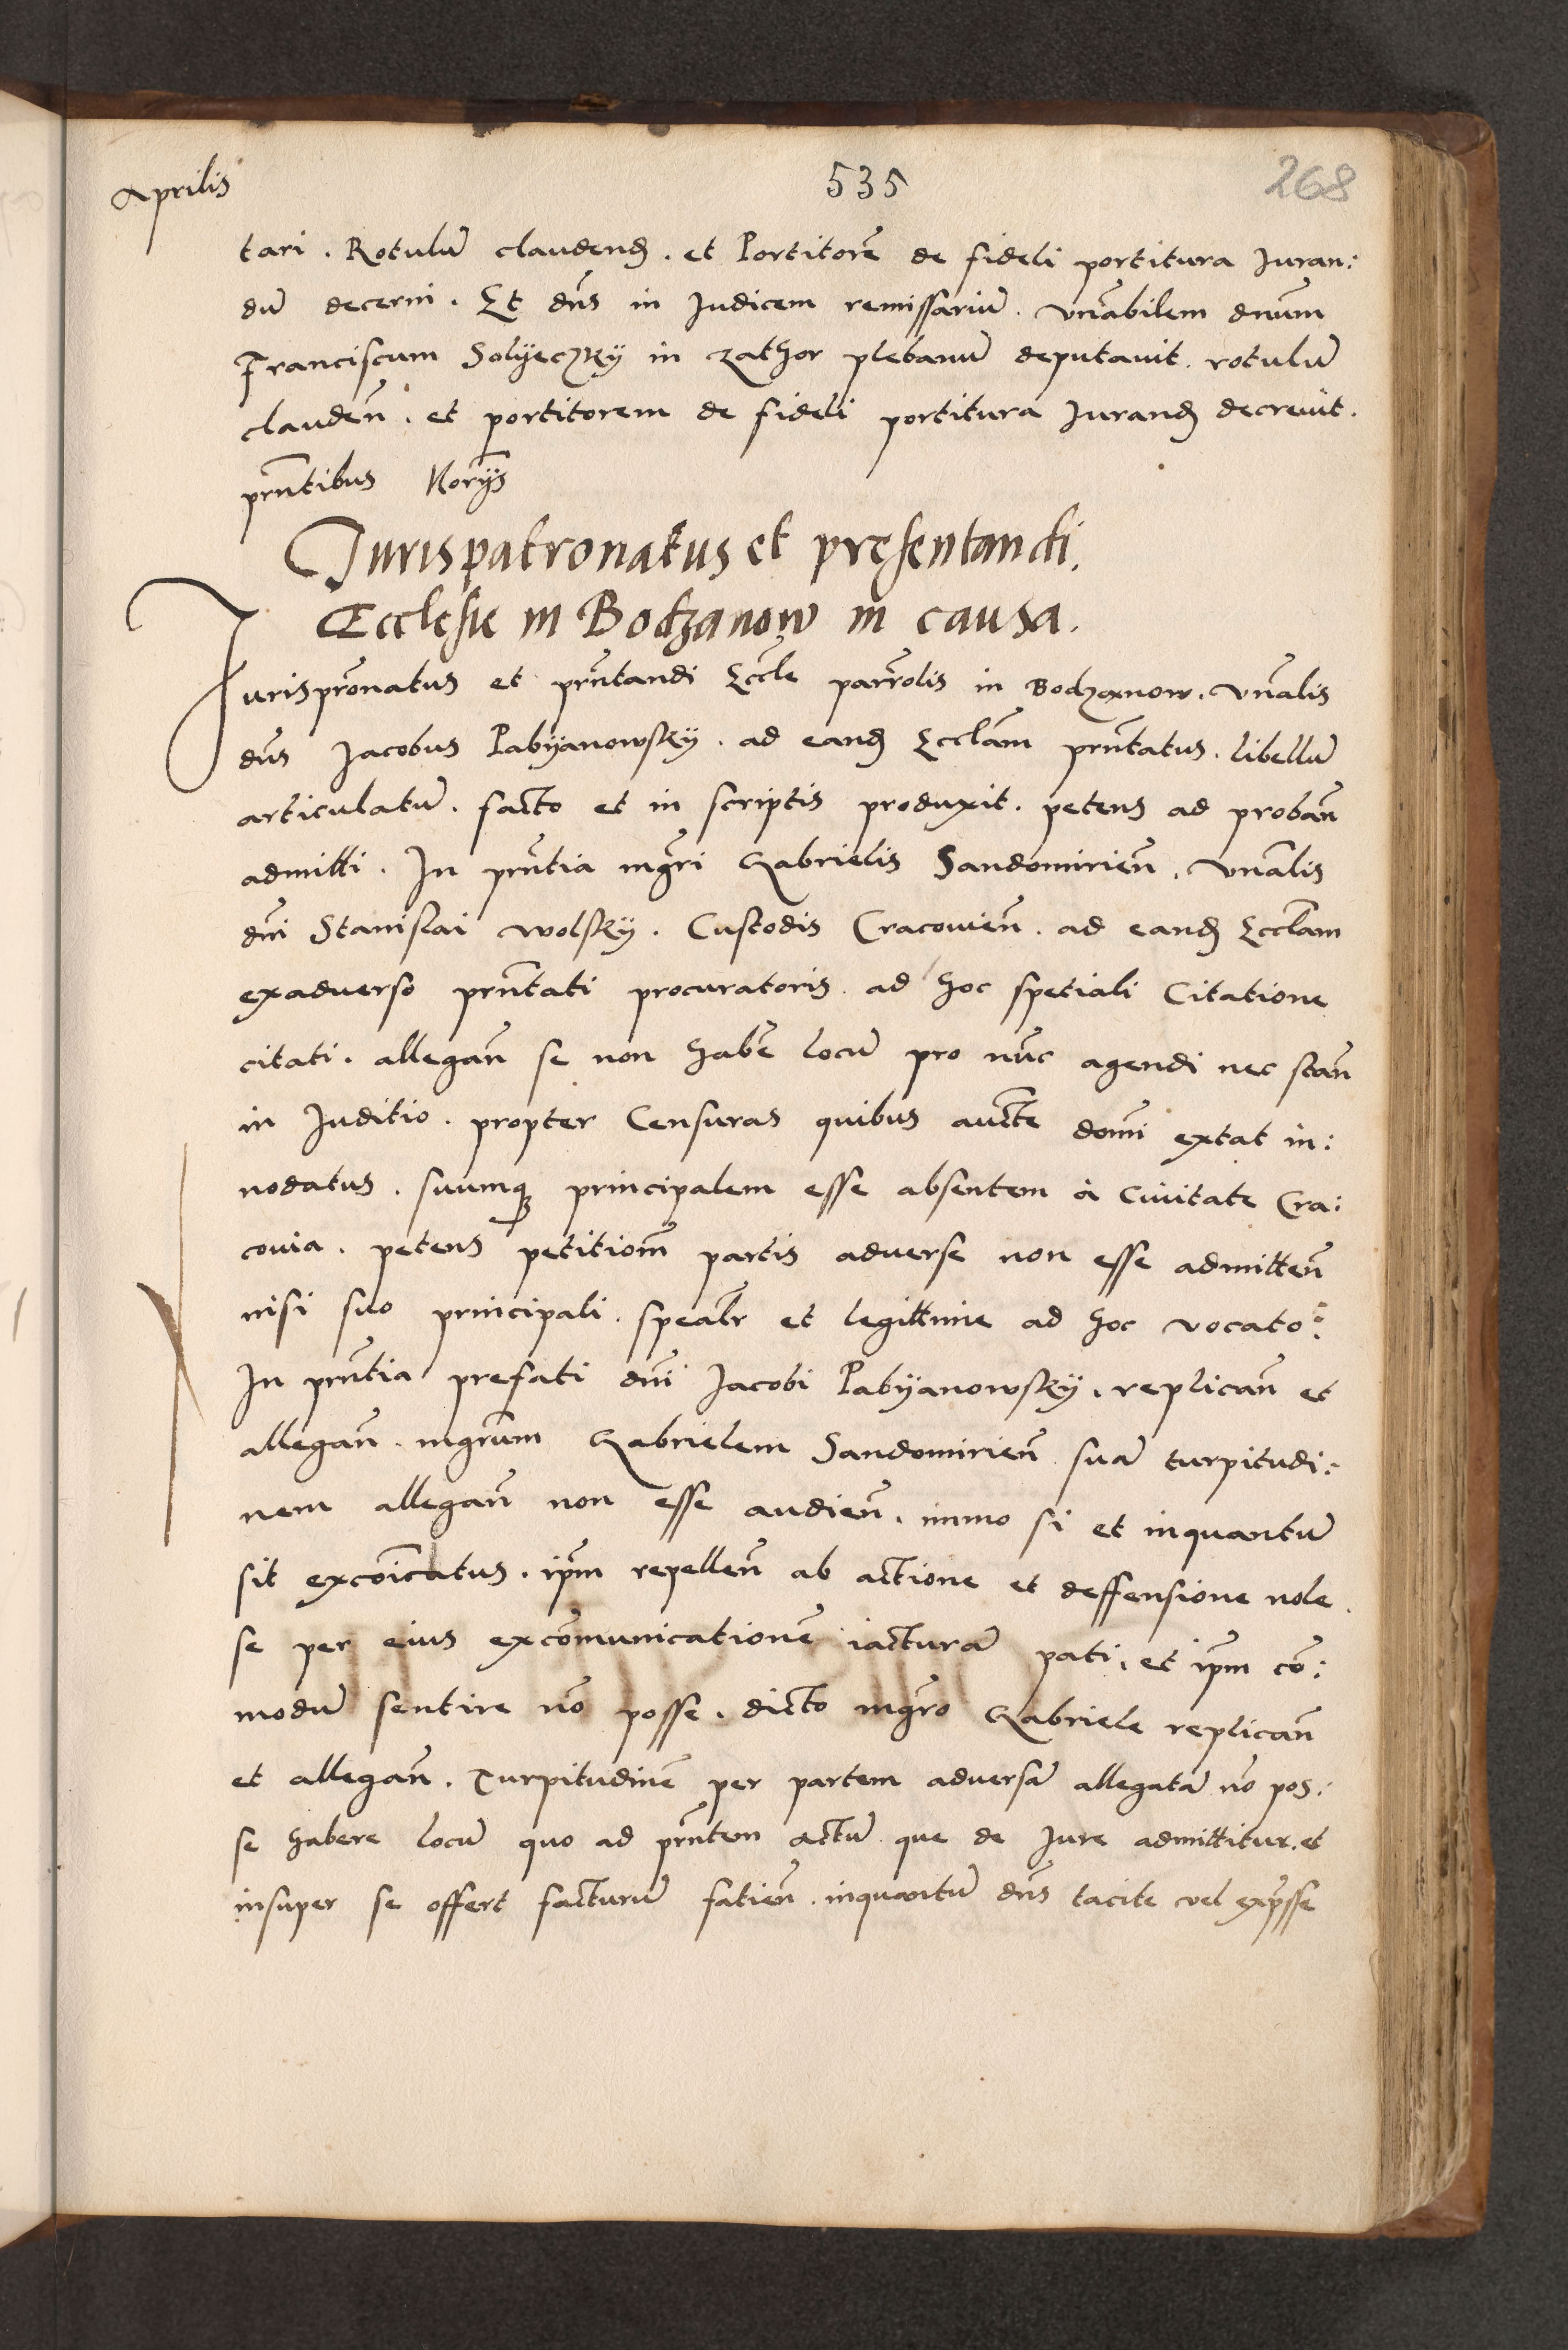 Aprilis
535
268
tari . Rotulū claudend . et Portitorē de fideli portitura Juran:
dū decerni . Et dn̄s in Judicem remissariū . vn̄abilem dnūm
Franciscum Solyeczky in zathor plebanū deputauit . rotulū
clauden̄ . et portitorem de fideli portitura Jurand decreuit .
prn̄tibus Norijs
Jurispatronatus et pręsentandi.
Ecclesię in Bodzanow in causa.
Jurisprōnatus et prn̄tandi Eccl̄e parr̄olis in Bodzanow . vn̄alis
dn̄s Jacobus Pabyanowsky . ad eand Eccl̄am prn̄tatus . libellū
articulatū . facto et in scriptis produxit . petens ad proban̄
admitti . In prn̄tia mgr̄i Gabrielis Sandomirien̄ . vn̄alis
dn̄i Stanislai wolsky . Custodis Cracouien̄ . ad eand Eccl̄am
exaduerso prn̄tati procuratoris . ad hoc spetiali Citatione
citati . allegan̄ se non habē locū pro nūc agendi nec stan̄
in Juditio . propter Censuras quibus auc̄te domī extat in:
nodatus . suumq principalem esse absentem à Ciuitate Cra:
couia . petens petitiom̄ partis aduerse non esse admitten̄
nisi suo principali . spealr̄ et legittime ad hoc vocato :
In prn̄tia prefati dn̄i Jacobi Pabyanowsky . replican̄ et
allegan̄ . mgrūm Gabrielem Sandomirien̄ suā turpitudi:
nem allegan̄ non esse audien̄ . immo si et inquantū
sit excōicatus . ip̄m repellen̄ ab actione et deffensione nole .
se per eius excōmunicationē iacturā pati . et ip̄m cō:
modū sentire nō posse . dicto mgr̄o Gabriele replican̄
et allegan̄ . Turpitudinē per partem aduersā allegatā nō pos:
se habere locū quo ad prn̄tem actū que de Jure admittitur . et
insuper se offert facturū fatien̄ . inquantū dn̄s tacite vel exp̄sse